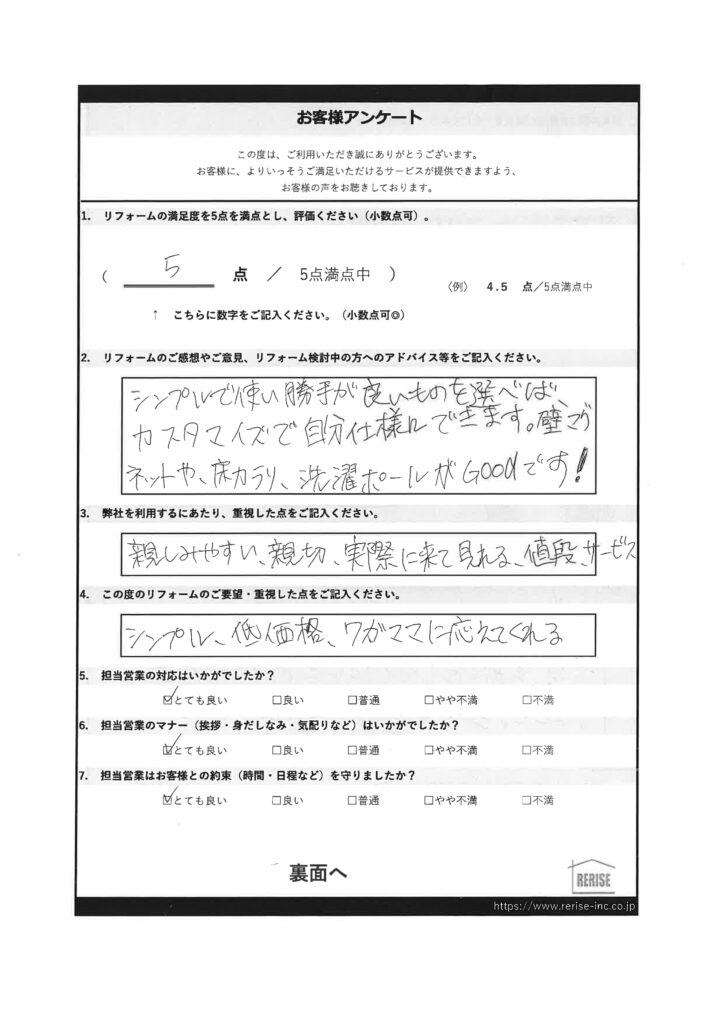 お客様アンケート
この度は、ご利用いただき誠にありがとうございます。
お客様に、よりいっそうご満足いただけるサービスが提供できますよう、
お客様の声をお聴きしております。
1. リフォームの満足度を5点を満点とし、評価ください（小数点可）。
（ 5 点 ／ 5点満点中 ）
〈例〉 4.5 点／5点満点中
↑ こちらに数字をご記入ください。（小数点可◎）
2. リフォームのご感想やご意見、リフォーム検討中の方へのアドバイス等をご記入ください。
シンプルで使い勝手が良いものを選べば、
カスタマイズで自分仕様にできます。壁マグ
ネットや、床カラリ、洗濯ポールがGoodです!
3. 弊社を利用するにあたり、重視した点をご記入ください。
親しみやすい、親切、実際に来て見れる、値段、サービス
4. この度のリフォームのご要望・重視した点をご記入ください。
シンプル、低価格、ワガママに応えてくれる
5. 担当営業の対応はいかがでしたか？
☑とても良い □良い □普通 □やや不満 □不満
6. 担当営業のマナー（挨拶・身だしなみ・気配りなど）はいかがでしたか？
☑とても良い □良い □普通 □やや不満 □不満
7. 担当営業はお客様との約束（時間・日程など）を守りましたか？
☑とても良い □良い □普通 □やや不満 □不満
裏面へ
RERISE
https://www.rerise-inc.co.jp